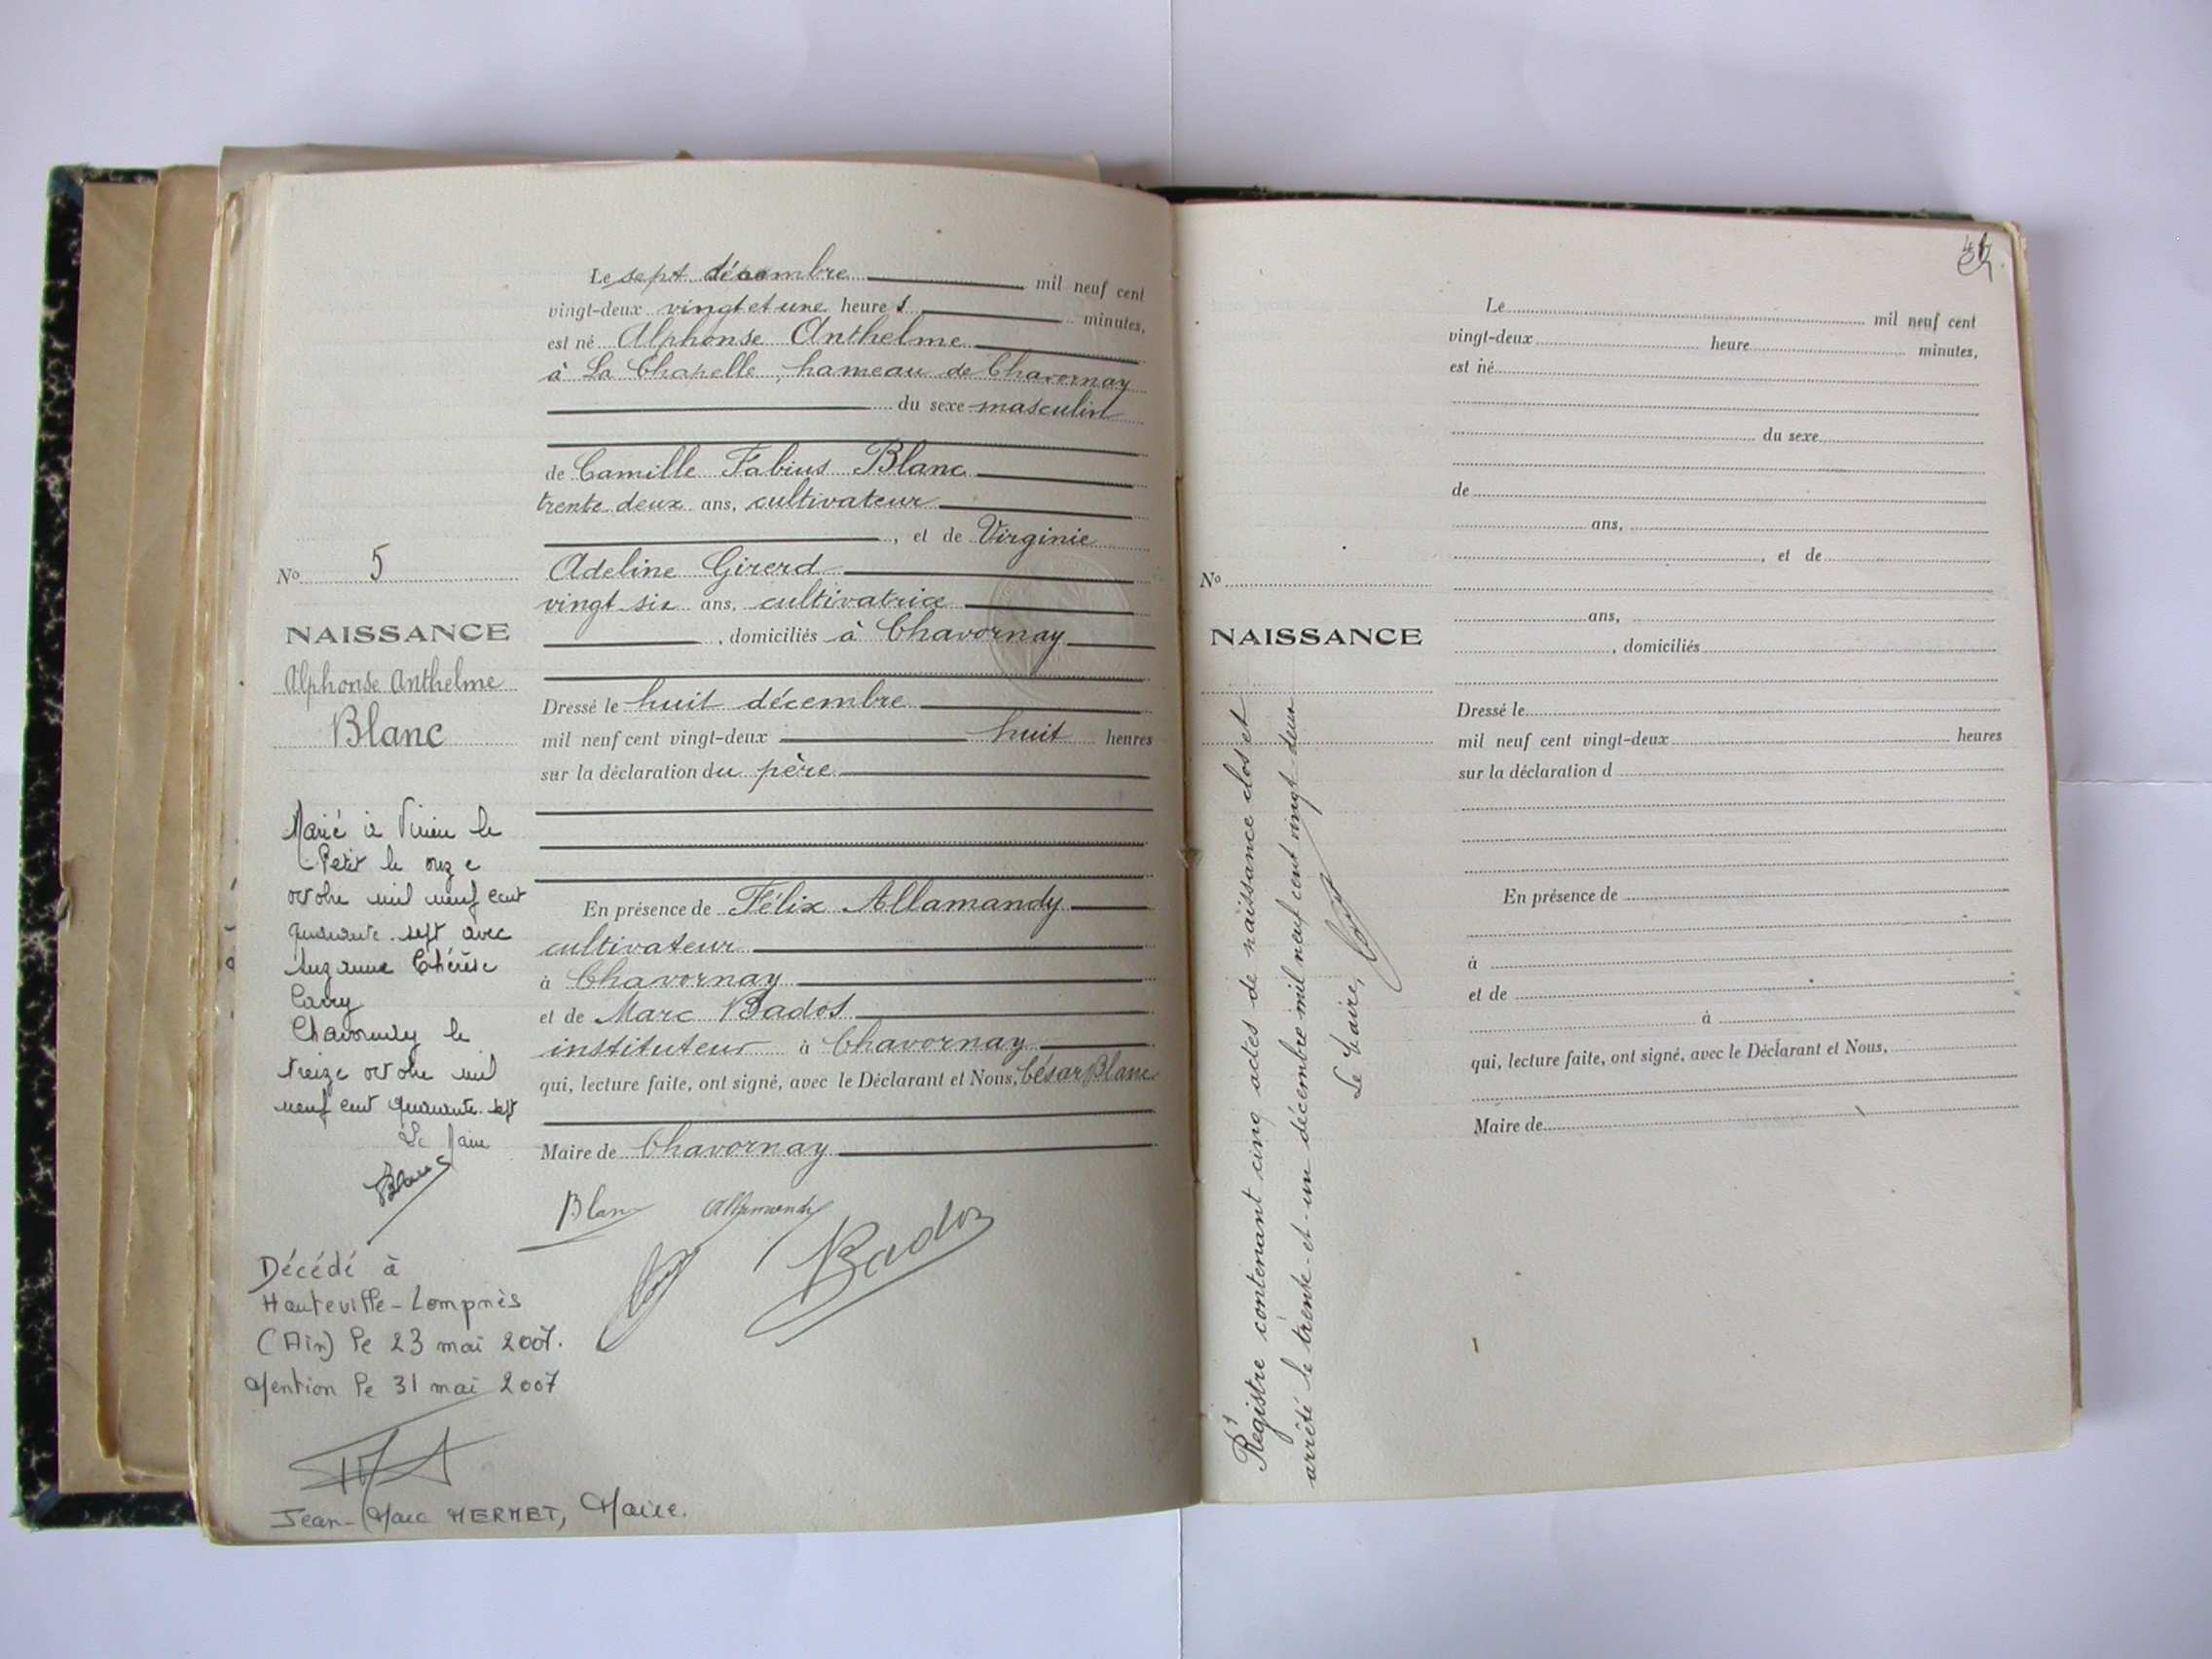 Le sept décembre mil neuf cent
vingt-deux vingt et une heure s minutes,
est né Alphonse Anthelme
à La Chapelle, hameau de Chavornay
du sexe masculin
de Camille Fabius Blanc
trente deux ans, cultivateur
, et de Virginie
Adeline Girerd
vingt six ans, cultivatrice
, domiciliés à Chavornay
Dressé le huit décembre
mil neuf cent vingt-deux huit heures
sur la déclaration du père
En présence de Félix Allamandy
cultivateur
à Chavornay
et de Marc Bados
instituteur à Chavornay
qui, lecture faite, ont signé, avec le Déclarant et Nous, César Blanc
Maire de Chavornay
Blanc Allamandy
Bados
No 5
NAISSANCE
Alphonse Anthelme
Blanc
Marié à Virieu le
Petit le onze
octobre mil neuf cent
quarante-sept avec
Suzanne Thérèse
Chavornay le
treize octobre mil
neuf cent quarante-sept
Le Maire
Blanc
Décédé à
Hauteville-Lompnès
(Ain) le 23 mai 2007.
Mention le 31 mai 2007
Jean-Marc HERMET, Maire.
Le mil neuf cent
vingt-deux heure minutes,
est né
du sexe
de
ans,
, et de
ans,
, domiciliés
Dressé le
mil neuf cent vingt-deux heures
sur la déclaration d
En présence de
à
et de
à
qui, lecture faite, ont signé, avec le Déclarant et Nous,
Maire de
No
NAISSANCE
Registre contenant cinq actes de naissance clos et
arrêté le trente-et-un décembre mil neuf cent vingt deux
Le Maire,